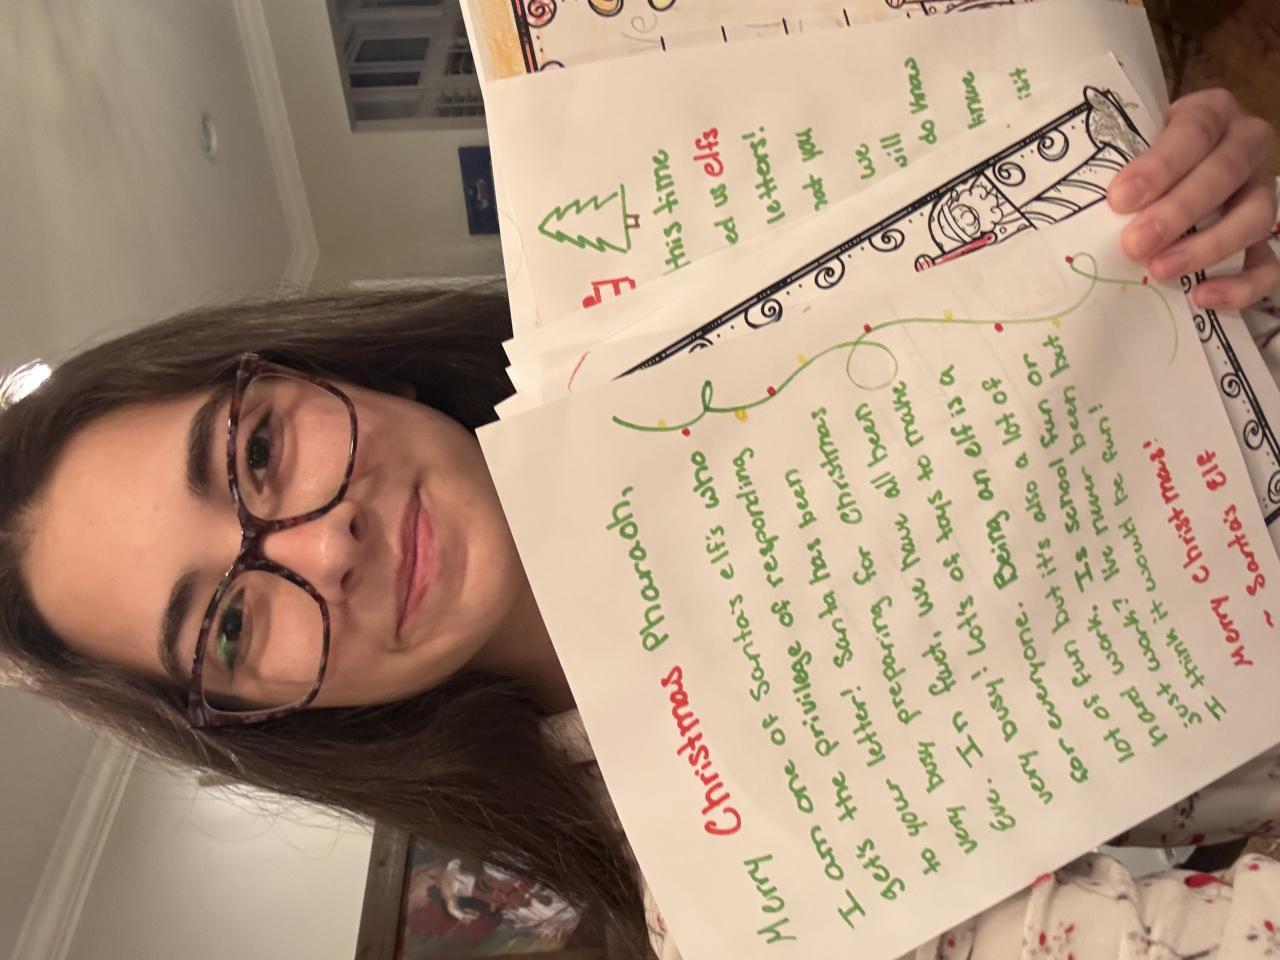 Merry Christmas Pharaoh,
I am one of Santa's elfs who
gets the privilege of responding
to your letter! Santa has been
very busy preparing for Christmas
Eve. In fact, we have all been
very busy! Lots of toys to make
for everyone. Being an elf is a
lot of fun but it's also a lot of
hard work. Is school fun or
just work? I've never been but
I think it would be fun!
Merry Christmas!
~ Santa's Elf
this time
ed us elfs
letters!
not you
we
will
do know
time
is!